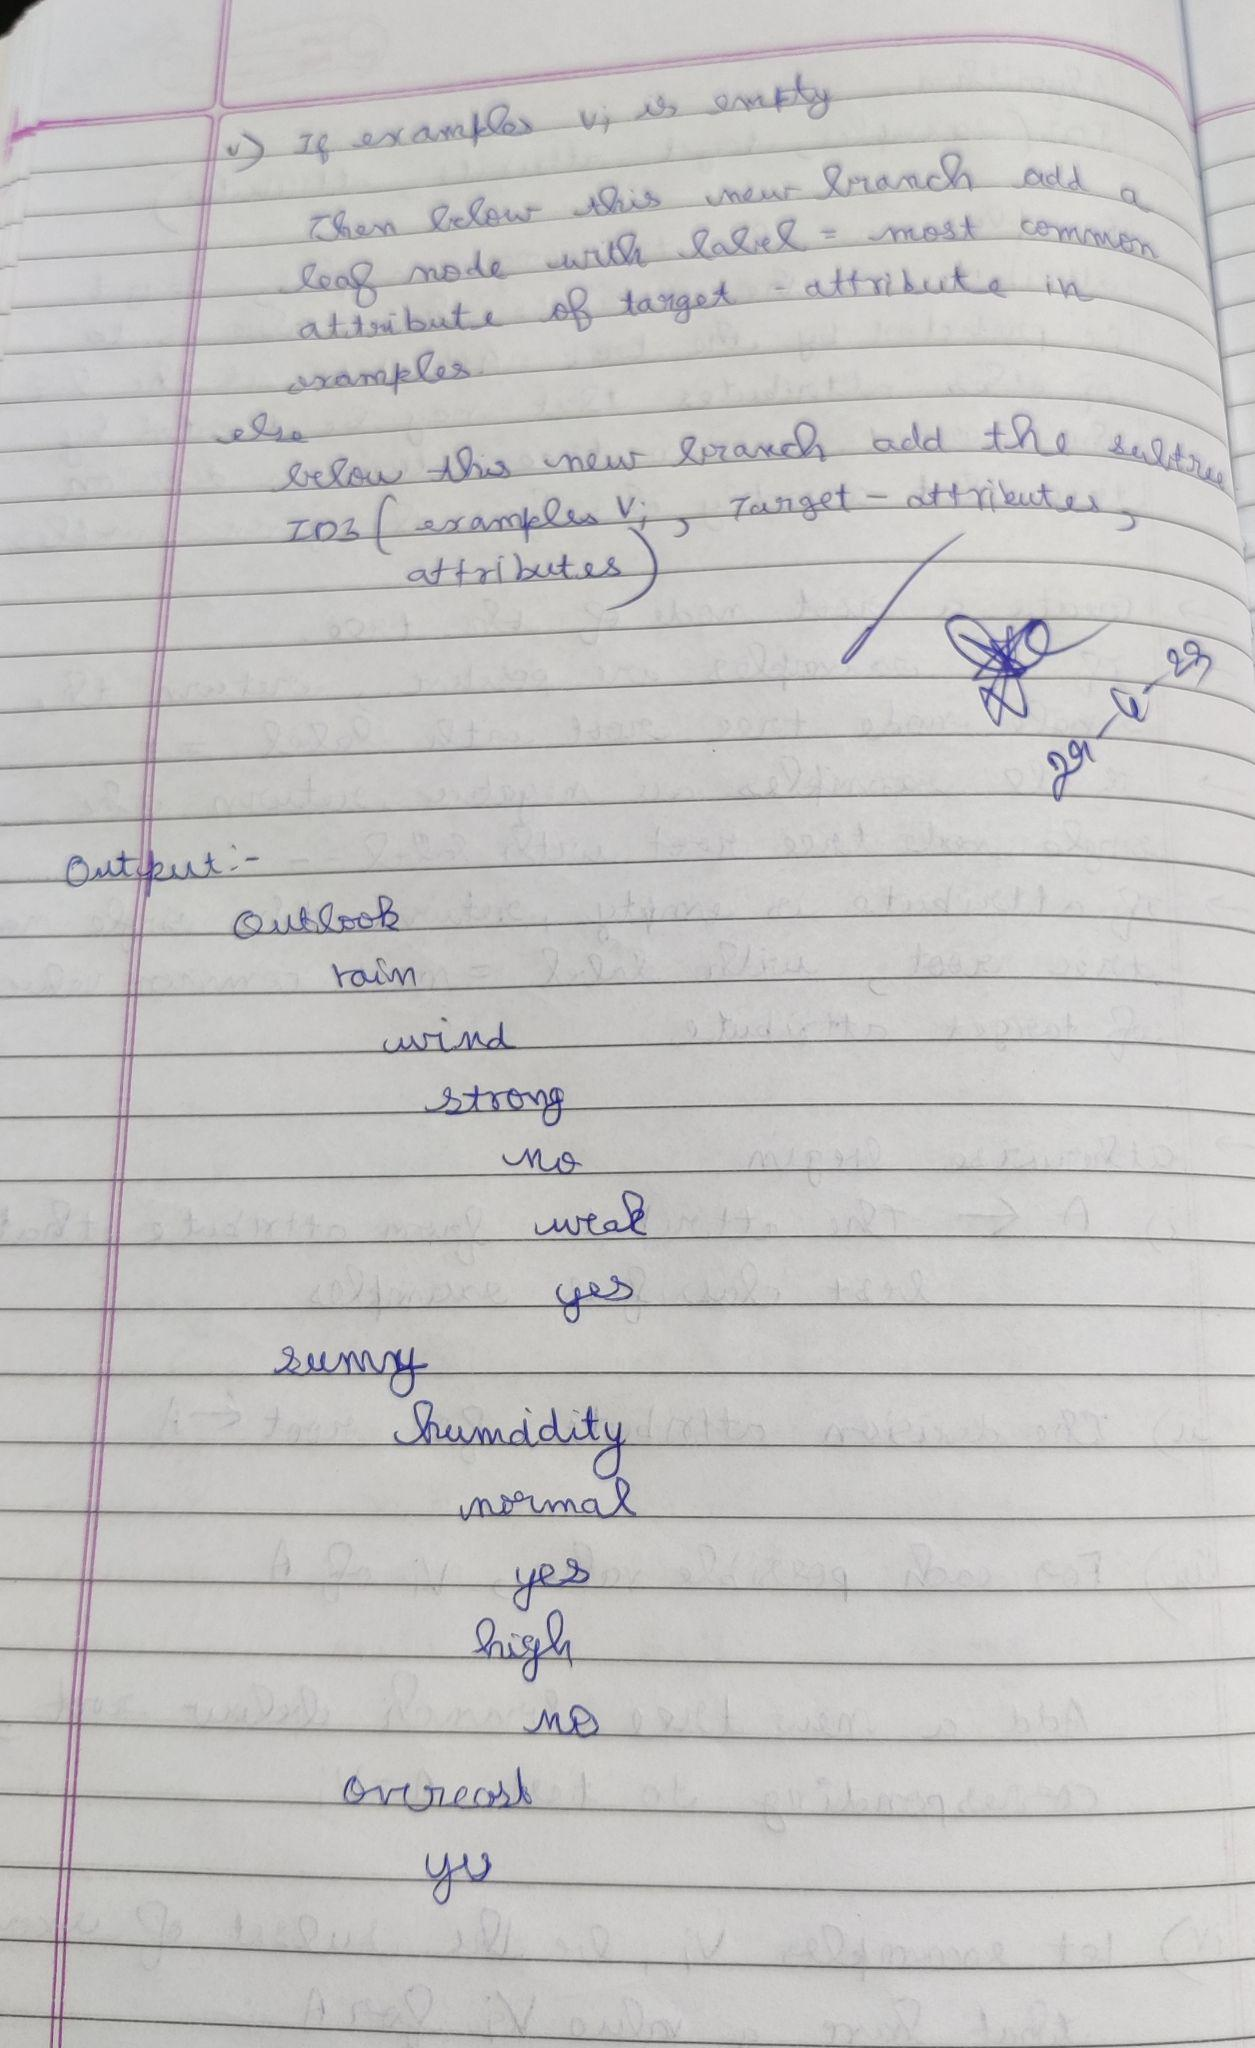 v) If examples vi is empty
Then below this new branch add a
leaf node with label = most common
attribute of target - attribute in
examples
else
below this new branch add the subtree
ID3 ( examples Vi , Target - attributes,
attributes)
Output:-
Outlook
rain
wind
strong
no
weak
yes
sunny
humidity
normal
yes
high
no
overcast
yes